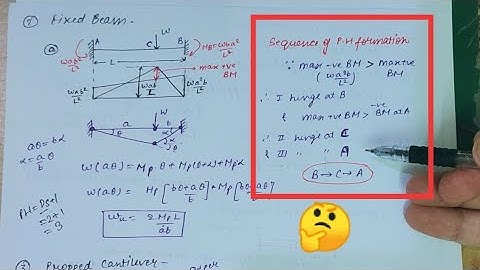 ⑦ Fixed Beam-
ⓐ
W
A C B
L
Wab²/L²
MB = Wa²b/L²
Wab²/L²
Wab/L
max+ve BM
Wa²b/L²
W
a b
θ α
aθ = bα
α = aθ/b
PH = Ds+1
= 2+1
= 3
W(aθ) = Mp.θ + Mp(θ+α) + Mpα
W(aθ) = Mp[bθ+aθ/b] + Mp[bθ+aθ/b]
Wu = 2MpL/ab
③ Propped Cantilever-
Sequence of P-H formation
∵ max -ve BM > max+ve BM
(Wa²b/L²)
∴ I hinge at B
& max+ve BM > -ve BM at A
∴ II hinge at C
& III " " A
B → C → A